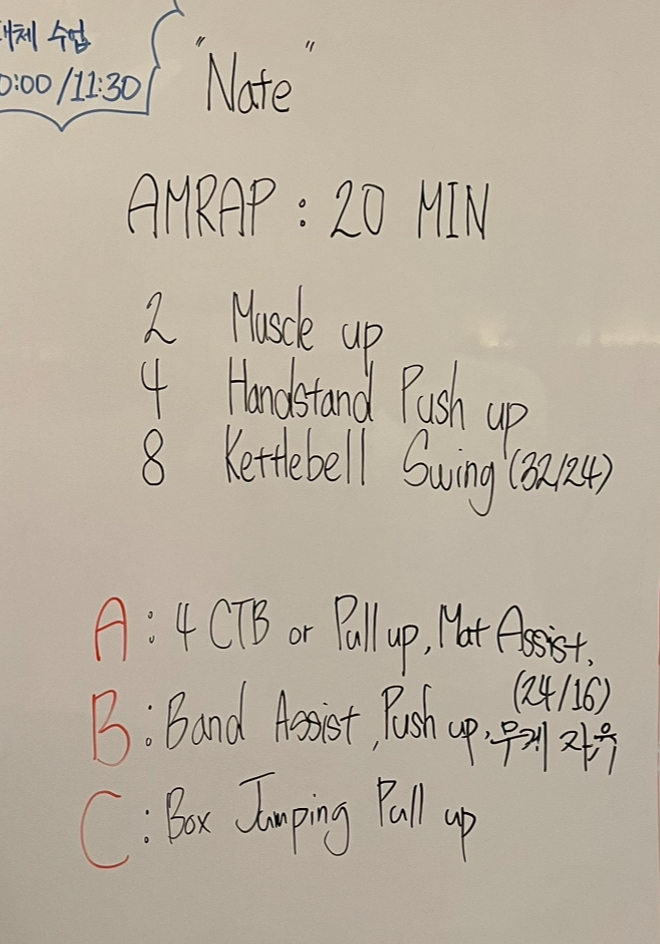 대체 수업
0:00/11:30
"Nate"
AMRAP : 20 MIN
2 Muscle up
4 Handstand Push up
8 Kettlebell Swing (32/24)
A : 4 CTB or Pull up, Mat Assist,
(24/16)
B : Band Assist, Push up, 무게 자유
C : Box Jumping Pull up